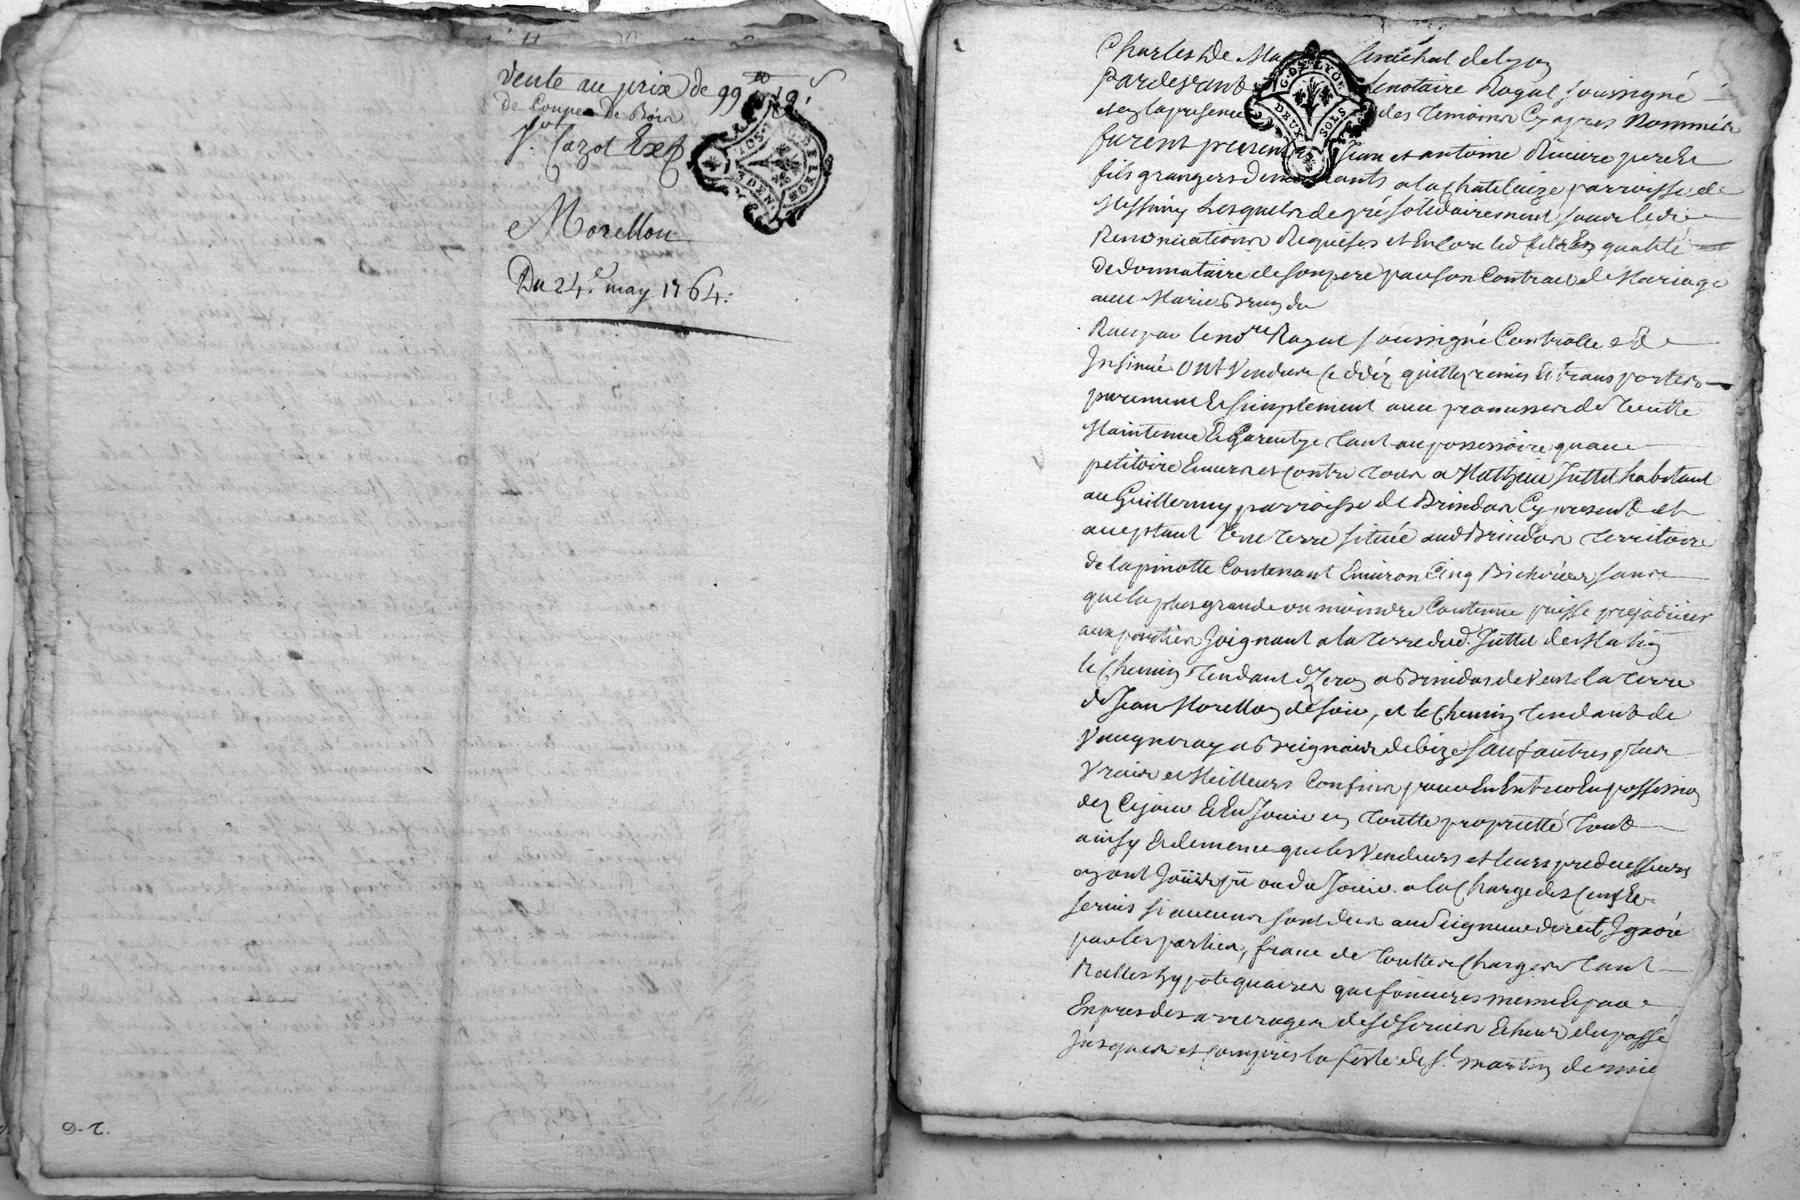 vente au prix de 99
de Coupe de Bois
p. Cazot
Morellon
Du 24e. may 1764.
D. T.
G. DE LYON
DEUX SOLS
Charles De Ma sénéchal de Lyon
Pardevant le notaire Royal soussigné
et en la presence des temoins Cy apres Nommés
furent presents Jean et antoine Riviere pere et
fils grangers demeurants a la Chatelaize parroisse de
Messimy Lesquels de gré solidairement sous les
Renonciations Requises et Encore led fils En qualité
de donnataire de son pere par son Contrat de Mariage
avec Marie
Recu par le nore Royal soussigné Controllé et
Insinué ont Vendus Ceddéz quittez remis Et transportez
purement Et simplement avec promesse de toutte
Maintenue Et Garentye tant au possessoire quau
petitoire Envers et Contre tous a Mathieu Juttet habitant
au Guillermy parroisse de Brindas Cy present et
aceptant Une terre située aud Brindas territoire
de la pinotte Contenant Environ Cinq Bicherées sans
que la plus grande ou moindre Contenue puisse prejudicier
aux parties Joignant a la terre dud. Juttet de Matin
le Chemin Tendant dyzeron a Brindas de Vent la terre
de Jean Morellon de soir, et le Chemin Tendant de
Vaugneray a Brignais de bize sauf autres plus
Vrais et Meilleurs Confins pour En Entrer En possession
dez Cejour Et En Jouir en toutte proprietté tout
ainsy Et de meme que les Vendeurs et leurs predecesseurs
ayant Joüir pü ou du Jouir a la Charge des Cens Et
servis si aucuns sont dus au Seigneur direct Ignoré
par les parties, franc de Touttes Charges Tant
Reelles hypotequaires que foncieres meme Et par
Expres des arrerages desd servis Echeus du passé
Jusques et Compris la feste de St. martin dernier